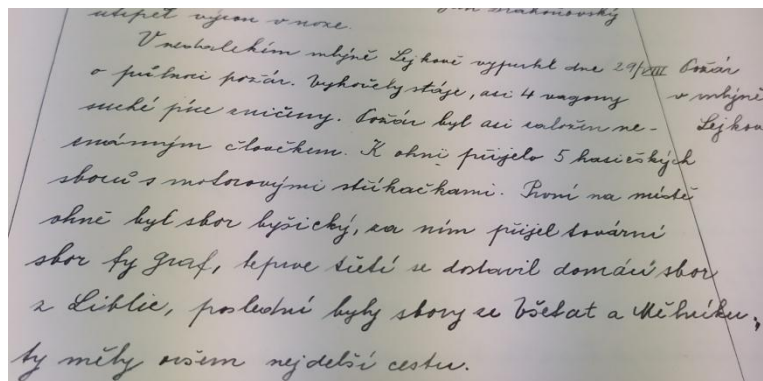 utrpět výron v noze.
V nedalekém mlýně Lejkově vypukl dne 29/VIII Požár
o půlnoci požár. Vyhořely stáje, asi 4 vagony v mlýně
suché píce zničeny. Požár byl asi založen ne- Lejkov
známým člověkem. K ohni přijelo 5 hasičských
sborů s motorovými stříkačkami. První na místě
ohně byl sbor byšický, za ním přijel tovární
sbor fy Graf, teprve třetí se dostavil domácí sbor
z Liblic, poslední byly sbory ze Všetat a Mělníku,
ty měly ovšem nejdelší cestu.